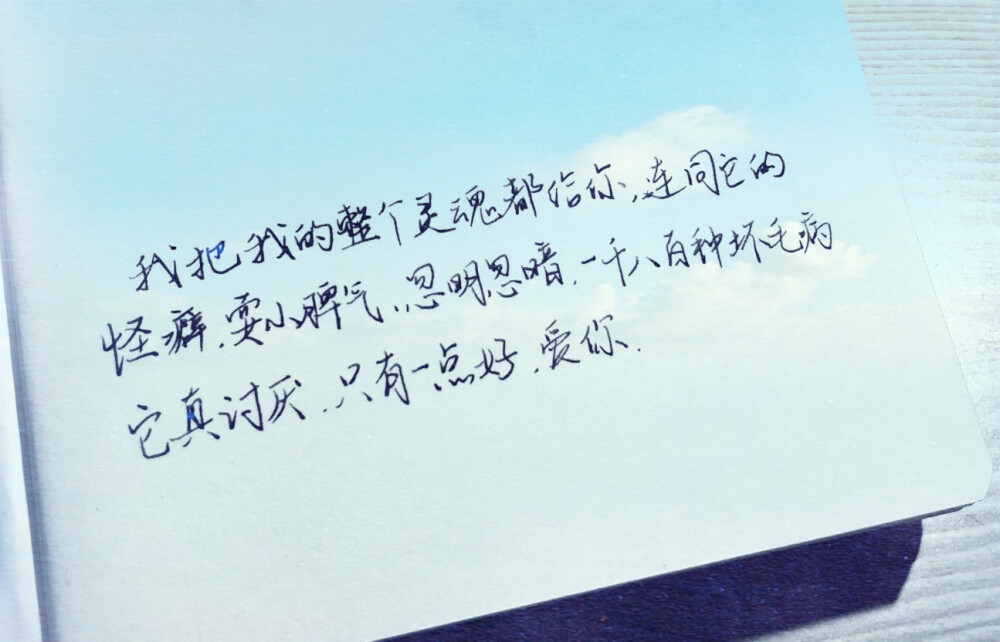 我把我的整个灵魂都给你,连同它的
怪癖,耍小脾气,忽明忽暗,一千八百种坏毛病
它真讨厌,只有一点好,爱你.